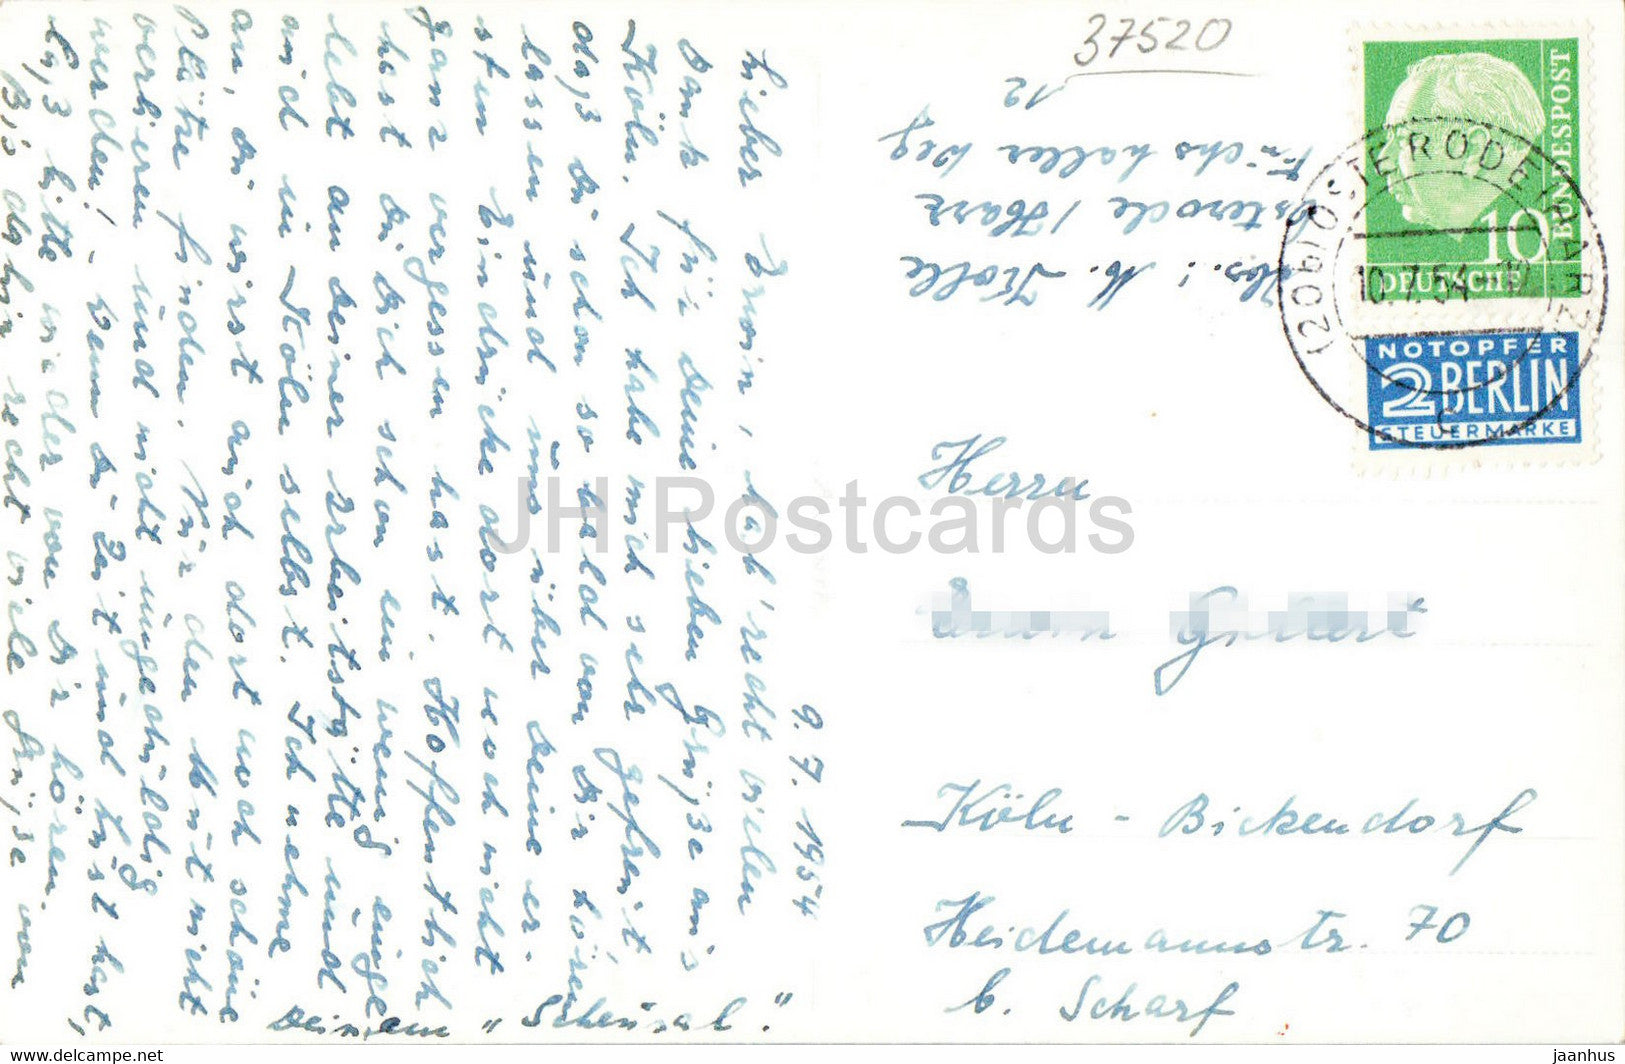 9. 7. 1954
Lieber Erwin, hab' recht vielen
Dank für Deine lieben Grüße aus
Köln. Ich habe mich sehr gefreut
daß Du schon so bald von Dir hören
lassen und uns über Deine er-
sten Eindrücke dort noch nicht
ganz vergessen hast. Hoffentlich
hast Du Dich schon ein wenig einge
lebt an Deiner Arbeitsstätte und
auch in Köln selbst. Ich nehme
an, Du wirst auch dort noch schöne
Plätze finden. Nur den Mut nicht
verlieren und nicht ungeduldig
werden! - Wenn Du Zeit und Lust hast,
laß bitte wieder von Dir hören.
Bis dahin recht viele Grüße von
Deinem "Scheusal."
37520
Abs.: M. Kolle
Osterode / Harz
Fuchshaller Weg
12
10
DEUTSCHE
BUNDESPOST
NOTOPFER
2 BERLIN
STEUERMARKE
(20b) OSTERODE (HARZ)
10.7.54
c
Herrn
Köln - Bickendorf
Heidemannstr. 70
b. Scharf
JH Postcards
https://www.delcampe.net
jaanhus